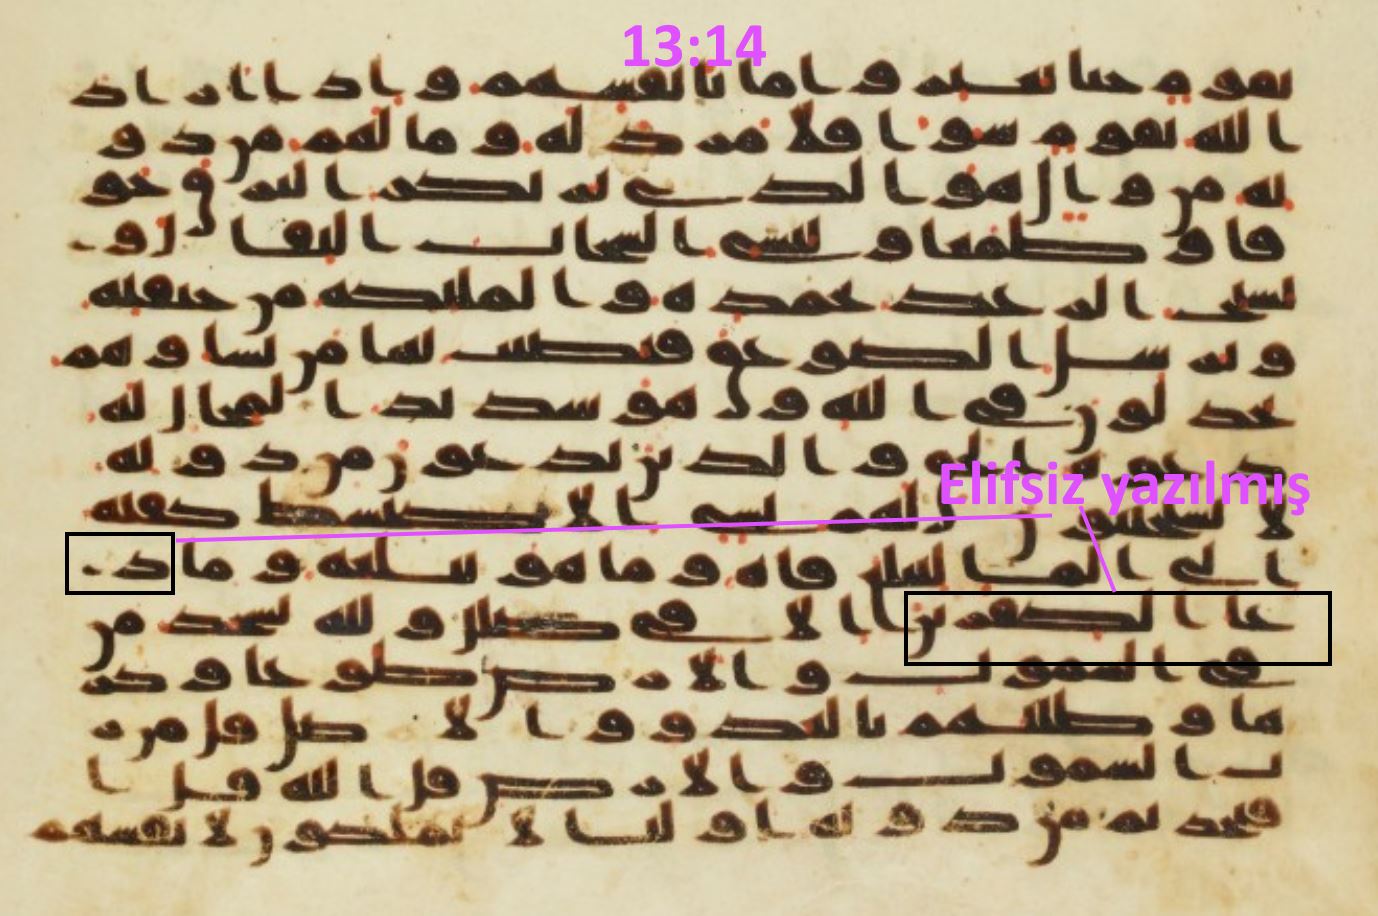 13:14
بقوم حتا يغيروا ما بانفسهم واذا اراد
الله بقوم سوا فلا مرد له وما لهم من دو
نه من وال هو الذي يريكم البرق خو
فا وطمعا وينشي السحاب الثقال و
يسبح الرعد بحمده والملئكه من خيفته
ويرسل الصوعق فيصيب بها من يشا وهم
يجدلون في الله وهو شديد المحال له
دعوه الحق والذين يدعون من دونه
Elifsiz yazılmış
لا يستجيبون لهم بشي الا كبسط كفيه
الى الما ليبلغ فاه وما هو ببلغه وما د
عا الكفرين الا في ضلل ولله يسجد من
في السموت والارض طوعا وكر
ها وظللهم بالغدو والاصل قل من ر
ب السموت والارض قل الله قل ا
فتخذتم من دونه اوليا لا يملكون لانفسهم